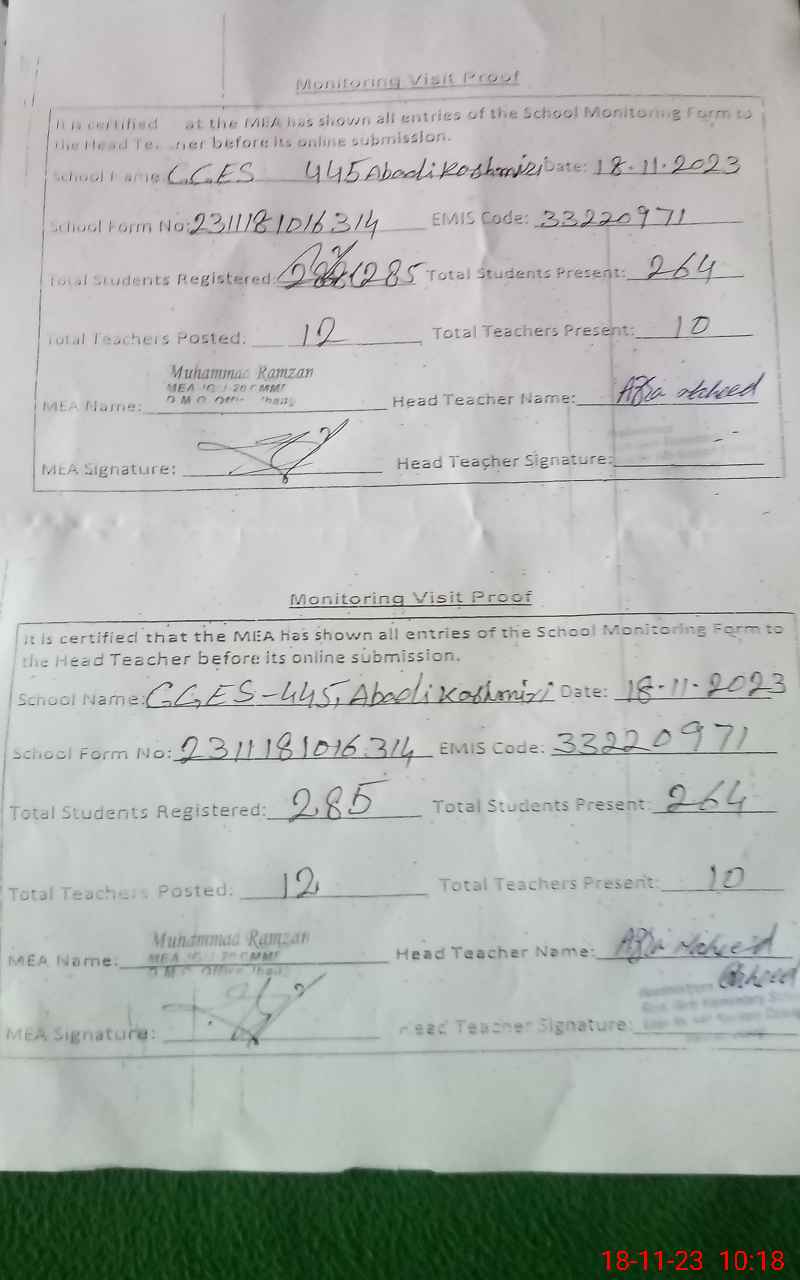 Monitoring Visit Proof
It is certified at the MEA has shown all entries of the School Monitoring Form to
the Head Te ner before its online submission.
School Name: GGES 445 Abadi Kashmizi Date: 18.11.2023
School Form No: 2311181016314 EMIS Code: 33220971
Total Students Registered: 285 Total Students Present: 264
Total Teachers Posted: 12 Total Teachers Present: 10
Muhammad Ramzan
MEA Name: Head Teacher Name:
MEA Signature: Head Teacher Signature:
Monitoring Visit Proof
It is certified that the MEA has shown all entries of the School Monitoring Form to
the Head Teacher before its online submission.
School Name: GGES-445, Abadi Kashmizi Date: 18-11-2023
School Form No: 2311181016314 EMIS Code: 33220971
Total Students Registered: 285 Total Students Present: 264
Total Teachers Posted: 12 Total Teachers Present: 10
Muhammad Ramzan
MEA Name: Head Teacher Name:
MEA Signature: Head Teacher Signature:
18-11-23 10:18